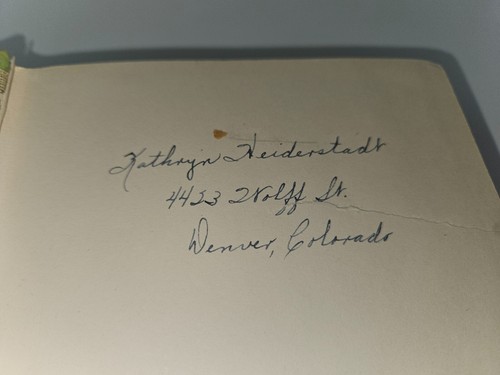 Kathryn Heiderstadt
4423 Wolff St.
Denver, Colorado